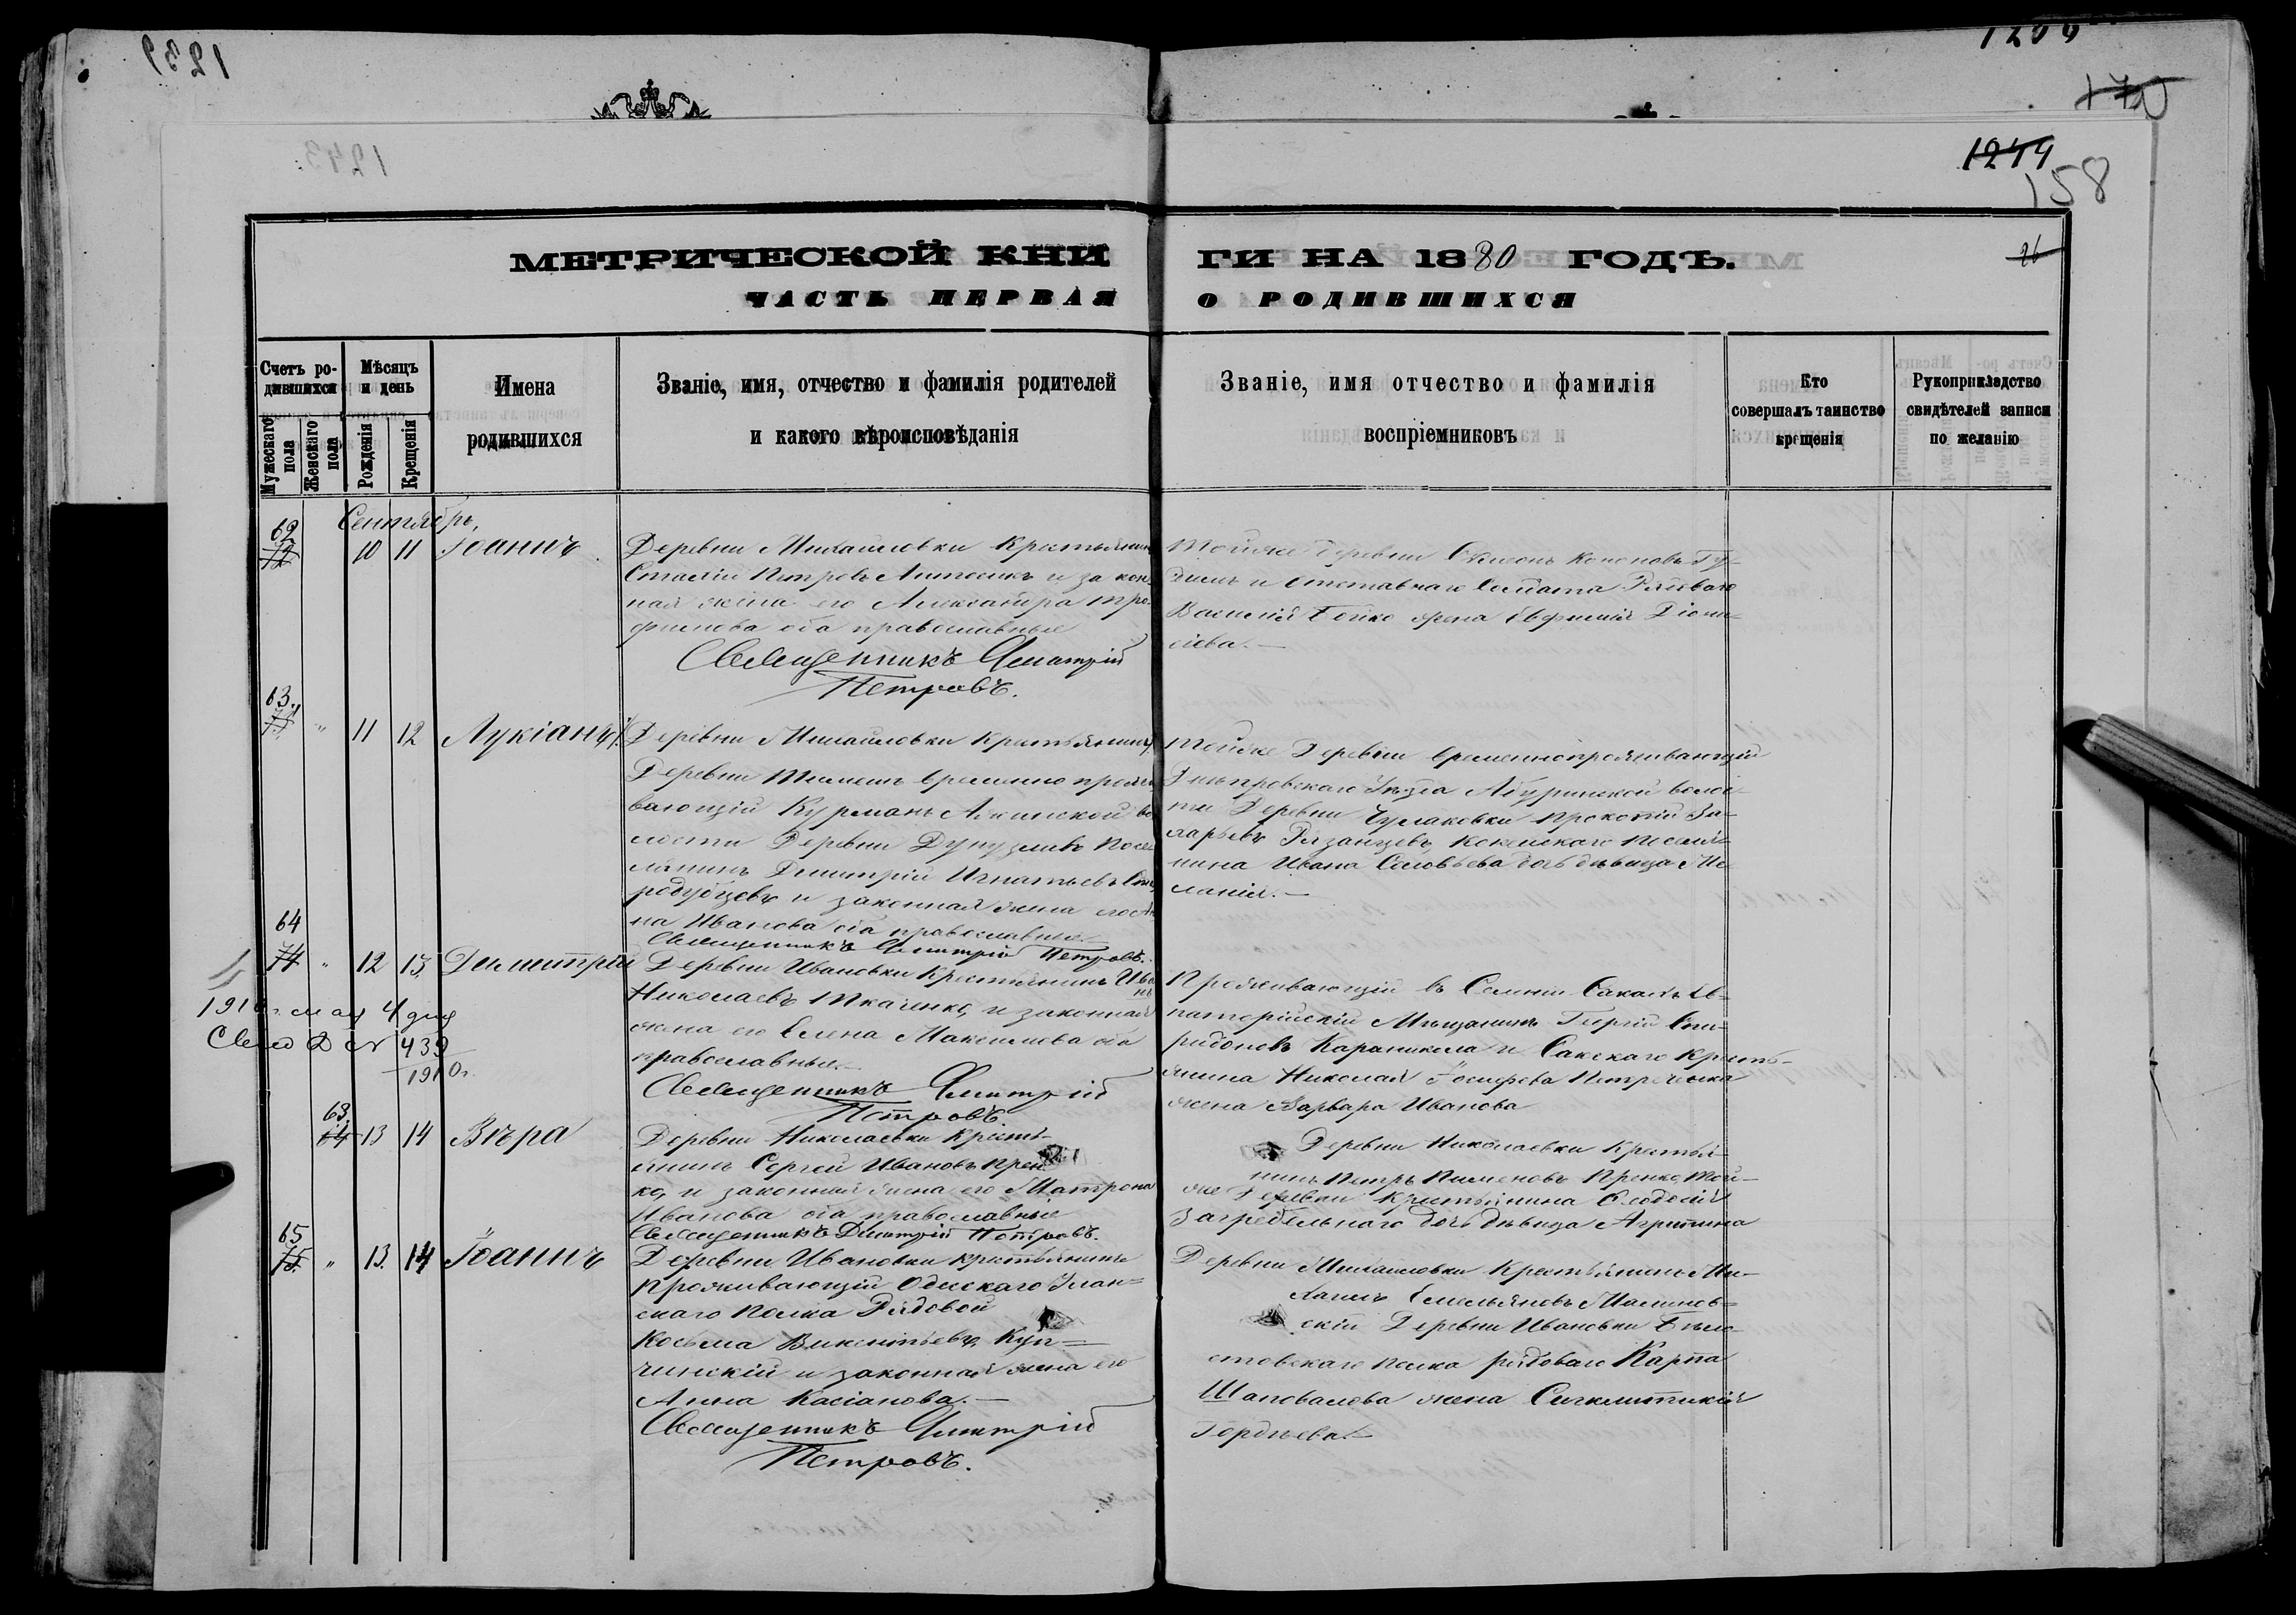 1239
1243
1244
158
26
МЕТРИЧЕСКОЙ КНИ ГИ НА 1880 ГОДЪ.
ЧАСТЬ ПЕРВАЯ О РОДИВШИХСЯ
Счетъ ро-
дившихся
Мужескаго пола
Женскаго пола
Мѣсяцъ
и день
Рожденія
Крещенія
Имена
родившихся
Званіе, имя, отчество и фамилія родителей
и какого вѣроисповѣданія
Званіе, имя отчество и фамилія
воспріемниковъ
Кто
совершалъ таинство
крещенія
Рукоприкладство
свидѣтелей записи
по желанію
Сентябрь,
62
72
10 11 Іоаннъ
Деревни Михайловки Крестьянинъ
Петровъ и закон-
ная жена его Александра Тро-
фимова оба православные
Священникъ Димитрій
Петровъ.
Тойже деревни Кононовъ Гу-
и отставнаго Солдата Рядоваго
Василія Бойко жена Евфимія Діони-
сіева.—
63.
73
" 11 12 Лукіанъ
Деревни Михайловки Крестьянинъ,
Деревни временно прожи
вающій Курманъ Аджинской во
лости Деревни Посе
лянинъ Димитрій Игнатьевъ Ста
родубцевъ и законная жена его Ан
на Иванова оба православные.
Священникъ Димитрій Петровъ.
Тойже Деревни временнопроживающій
Днѣпровскаго Уѣзда волос
ти Деревни Чулаковки Прокопій За-
харьевъ Рязанцевъ, поселя-
нина Ивана Соловьева дочь дѣвица Ме-
ланія.—
64
74
" 12 13 Димитрій
Деревни Ивановки Крестьянинъ Ива
нъ
Николаевъ Ткаченко, и законная
жена его Елена Максимова оба
православные.—
Священникъ Димитрій
Петровъ.
Проживающій въ Селении Сакахъ Ев-
паторійскій Мѣщанинъ Георгій Спи-
ридоновъ Караникола и Сакскаго Кресть-
янина Николая Іосифова
жена Варвара Иванова
1910 г. мая 4 дня
439
1910 г.
63.
64 13 14 Вѣра
Деревни Николаевки Кресть-
янинъ Сергей Ивановъ Прен
ко, и законная жена его Матрона
Иванова оба православные
Священникъ Димитрій Петровъ.
Деревни Николаевки Крестья-
нинъ Петръ Пименовъ Пренко, той-
же Деревни Крестьянина Ѳеодосія
Загребельнаго дочь дѣвица Агрипина
65
75.
" 13. 14 Іоаннъ
Деревни Ивановки Крестьянинъ
проживающій Одесскаго Улан-
скаго полка Рядовой
Косьма Викентьевъ, Куп-
чинскій и законная жена его
Анна Касіанова.—
Священникъ Димитрій
Петровъ.
Деревни Михайловки Крестьянинъ Ми-
хаилъ Емельяновъ Малинов-
скій Деревни Ивановки Бѣло-
стовскаго полка рядоваго Карпа
Шаповалова жена Синклитикія
Гордѣева.—